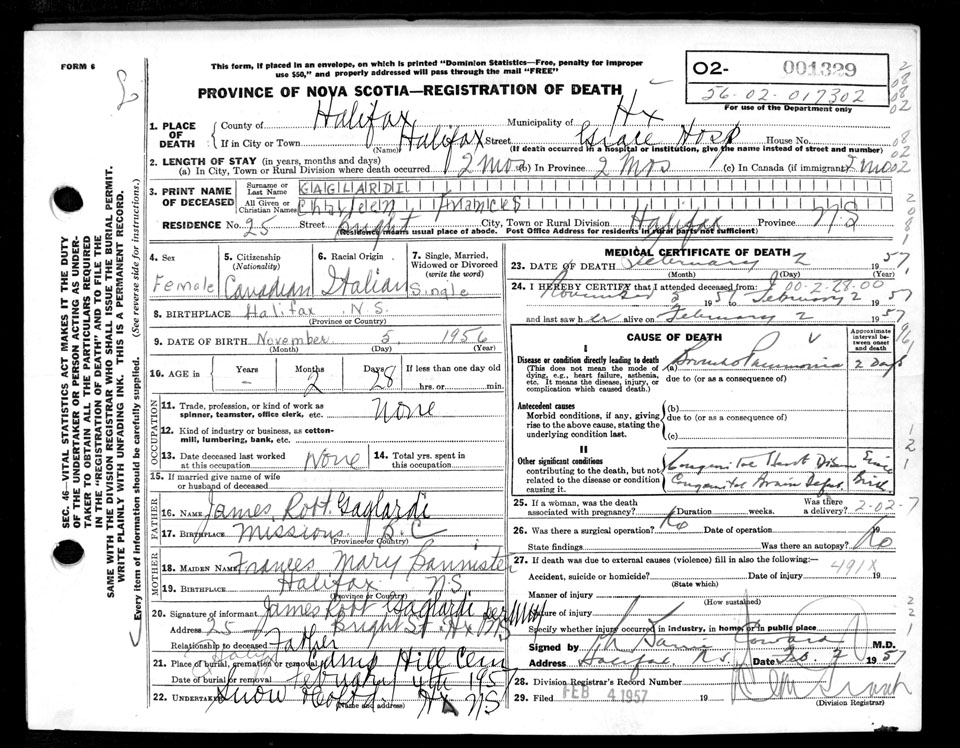 FORM 6
This form, if placed in an envelope, on which is printed "Dominion Statistics—Free, penalty for improper
use $50," and properly addressed will pass through the mail "FREE"
PROVINCE OF NOVA SCOTIA—REGISTRATION OF DEATH
02- 001329
56-02-017302
For use of the Department only
1. PLACE OF DEATH
County of Halifax Municipality of Hx
If in City or Town Halifax Street Grace Hosp House No.
(Name) (If death occurred in a hospital or institution, give the name instead of street and number)
2. LENGTH OF STAY (in years, months and days)
(a) In City, Town or Rural Division where death occurred 2 Mos (b) In Province 2 Mos (c) In Canada (if immigrant) 2 mo
3. PRINT NAME OF DECEASED
Surname or Last Name GAGLARDI
All Given or Christian Names Frances
RESIDENCE No. 25 Street Bright City, Town or Rural Division Halifax Province N.S
(Residence means usual place of abode. Post Office Address for residents in rural parts not sufficient)
4. Sex Female
5. Citizenship (Nationality) Canadian
6. Racial Origin Italian
7. Single, Married, Widowed or Divorced (write the word) Single
8. BIRTHPLACE Halifax N.S.
(Province or Country)
9. DATE OF BIRTH November 5, 1956
(Month) (Day) (Year)
10. AGE in Years – Months 2 Days 28 If less than one day old hrs. or min.
OCCUPATION
11. Trade, profession, or kind of work as spinner, teamster, office clerk, etc. None
12. Kind of industry or business, as cotton-mill, lumbering, bank, etc.
13. Date deceased last worked at this occupation None
14. Total yrs. spent in this occupation
15. If married give name of wife or husband of deceased
FATHER
16. NAME James Robt Gaglardi
17. Birthplace Missions B.C
(Province or Country)
MOTHER
18. MAIDEN NAME Frances Mary Bannister
19. BIRTHPLACE Halifax NS
(Province or Country)
20. Signature of informant James Robt Gaglardi
Address 25 Bright St Hx NS
Relationship to deceased Father
21. Place of burial, cremation or removal Hill Cem
Date of burial or removal February 4th 1957
22. Undertaker Snow Hx NS
(Name and address)
MEDICAL CERTIFICATE OF DEATH
23. DATE OF DEATH February 2 1957
(Month) (Day) (Year)
24. I HEREBY CERTIFY that I attended deceased from:
00-2-28.00
November 5 195 to February 2 1957
and last saw her alive on February 2 1957
CAUSE OF DEATH
Approximate interval between onset and death
I
Disease or condition directly leading to death
(This does not mean the mode of dying, e.g., heart failure, asthenia, etc. It means the disease, injury, or complication which caused death.)
(a) Broncho Pneumonia 2 Days
due to (or as a consequence of)
Antecedent causes
Morbid conditions, if any, giving rise to the above cause, stating the underlying condition last.
(b)
due to (or as a consequence of)
(c)
II
Other significant conditions
contributing to the death, but not related to the disease or condition causing it.
Congenital Heart Disease Since
Congenital Brain Birth
25. If a woman, was the death associated with pregnancy? No Duration weeks. Was there a delivery?
2-02-7
26. Was there a surgical operation? Date of operation 19
State findings Was there an autopsy? No
27. If death was due to external causes (violence) fill in also the following:
491X
Accident, suicide or homicide? Date of injury 19
(State which)
Manner of injury
(How sustained)
Nature of injury
Specify whether injury occurred in industry, in home, or in public place
Signed by M.D.
Address Halifax N.S. Date Feb. 2 1957
28. Division Registrar's Record Number
29. Filed FEB 4 1957 19
(Division Registrar)
SEC. 46—VITAL STATISTICS ACT MAKES IT THE DUTY
OF THE UNDERTAKER OR PERSON ACTING AS UNDER-
TAKER TO OBTAIN ALL THE PARTICULARS REQUIRED
IN THE "REGISTRATION OF DEATH" AND TO FILE THE
SAME WITH THE DIVISION REGISTRAR WHO SHALL ISSUE THE BURIAL PERMIT.
WRITE PLAINLY WITH UNFADING INK. THIS IS A PERMANENT RECORD.
Every item of information should be carefully supplied. (See reverse side for instructions.)